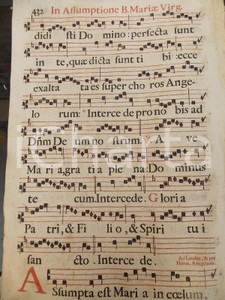 432 In Assumptione B. Mariæ Virg.
didi sti Do mino: perfecta sunt
in te, quæ dicta sunt ti bi: ecce
exalta ta es super cho ros Ange-
lo rum: Interce de pro no bis ad
Dñm De um no strum. A ve
Ma ri a, gra ti a ple na: Do minus
te cum. Intercede. Glo ri a
Pa tri, & Fi li o, & Spi ri tu i
san cto. Interce de.
Ad Laudes, & per
Horas, Antiphona.
Assumpta est Mari a in cœlum,